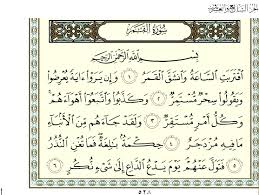 الجزء السابع والعشرون
سُورَةُ القَمَرِ
بِسْمِ اللَّهِ الرَّحْمَٰنِ الرَّحِيمِ
اقْتَرَبَتِ السَّاعَةُ وَانشَقَّ الْقَمَرُ ١ وَإِن يَرَوْا ءَايَةً يُعْرِضُوا
وَيَقُولُوا سِحْرٌ مُّسْتَمِرٌّ ٢ وَكَذَّبُوا وَاتَّبَعُوا أَهْوَاءَهُمْ
وَكُلُّ أَمْرٍ مُّسْتَقِرٌّ ٣ وَلَقَدْ جَاءَهُم مِّنَ الْأَنبَاءِ
مَا فِيهِ مُزْدَجَرٌ ٤ حِكْمَةٌ بَالِغَةٌ فَمَا تُغْنِ النُّذُرُ
٥ فَتَوَلَّ عَنْهُمْ يَوْمَ يَدْعُ الدَّاعِ إِلَىٰ شَيْءٍ نُّكُرٍ ٦
٥٢٨